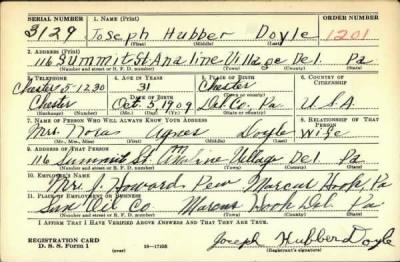 SERIAL NUMBER 1. NAME (Print) ORDER NUMBER
3129 Joseph Hubber Doyle 1201
(First) (Middle) (Last)
2. ADDRESS (Print)
116 Summit St Analine Village Del. Pa
(Number and street or R. F. D. number) (Town) (County) (State)
3. TELEPHONE 4. AGE IN YEARS 5. PLACE OF BIRTH 6. COUNTRY OF CITIZENSHIP
Chester 5-1230 31 Chester
DATE OF BIRTH (Town or county)
Chester Oct. 5, 1909 Del. Co. Pa. U.S.A.
(Exchange) (Number) (Mo.) (Day) (Yr.) (State or country)
7. NAME OF PERSON WHO WILL ALWAYS KNOW YOUR ADDRESS 8. RELATIONSHIP OF THAT PERSON
Mrs. Nora Agnes Doyle Wife
(Mr., Mrs., Miss) (First) (Middle) (Last)
9. ADDRESS OF THAT PERSON
116 Summit St. Village Del. Pa
(Number and street or R. F. D. number) (Town) (County) (State)
10. EMPLOYER'S NAME
Mr. J. Howard Pew Marcus Hook, Pa
11. PLACE OF EMPLOYMENT OR BUSINESS
Sun Oil Co Marcus Hook Del. Pa
(Number and street or R. F. D. number) (Town) (County) (State)
I AFFIRM THAT I HAVE VERIFIED ABOVE ANSWERS AND THAT THEY ARE TRUE.
REGISTRATION CARD
D. S. S. Form 1 (over) Joseph Hubber Doyle
(Registrant's signature)